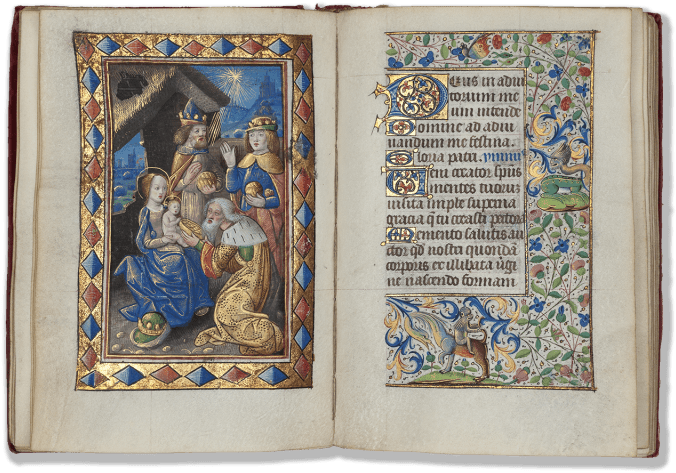 Deus in adiu
torium me
um intende
Domine ad adiu
uandum me festina.
Gloria patri.
Ueni creator spūs
mentes tuorū
uisita imple superna
gracia q̄ tu creasti pectora
Memento salutis auc
tor qd̄ nostri quondā
corporis ex illibata ūgi
ne nascendo formam